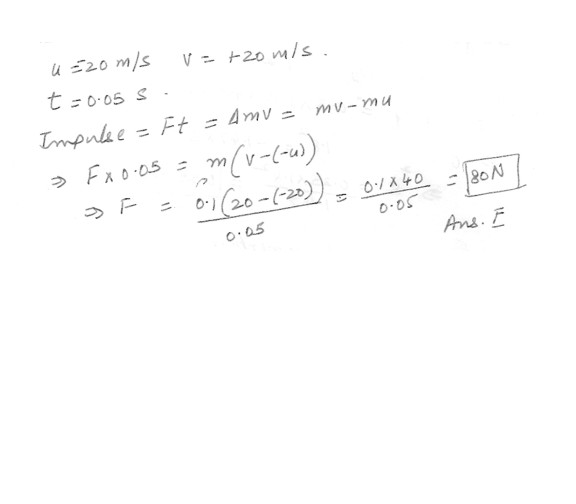 u = 20 m/s v = +20 m/s.
t = 0.05 s.
Impulse = Ft = Δmv = mv - mu
⇒ F x 0.05 = m(v-(-u))
⇒ F = 0.1(20-(-20)) / 0.05 = 0.1 x 40 / 0.05 = 80 N
Ans. E